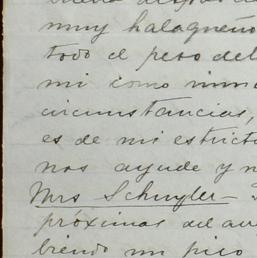 muy halagueño
todo el peso del
mi como
circunstancias,
es de mi estrict
nos ayude y n
Mrs Schuyler —
próximas del
biendo un pico